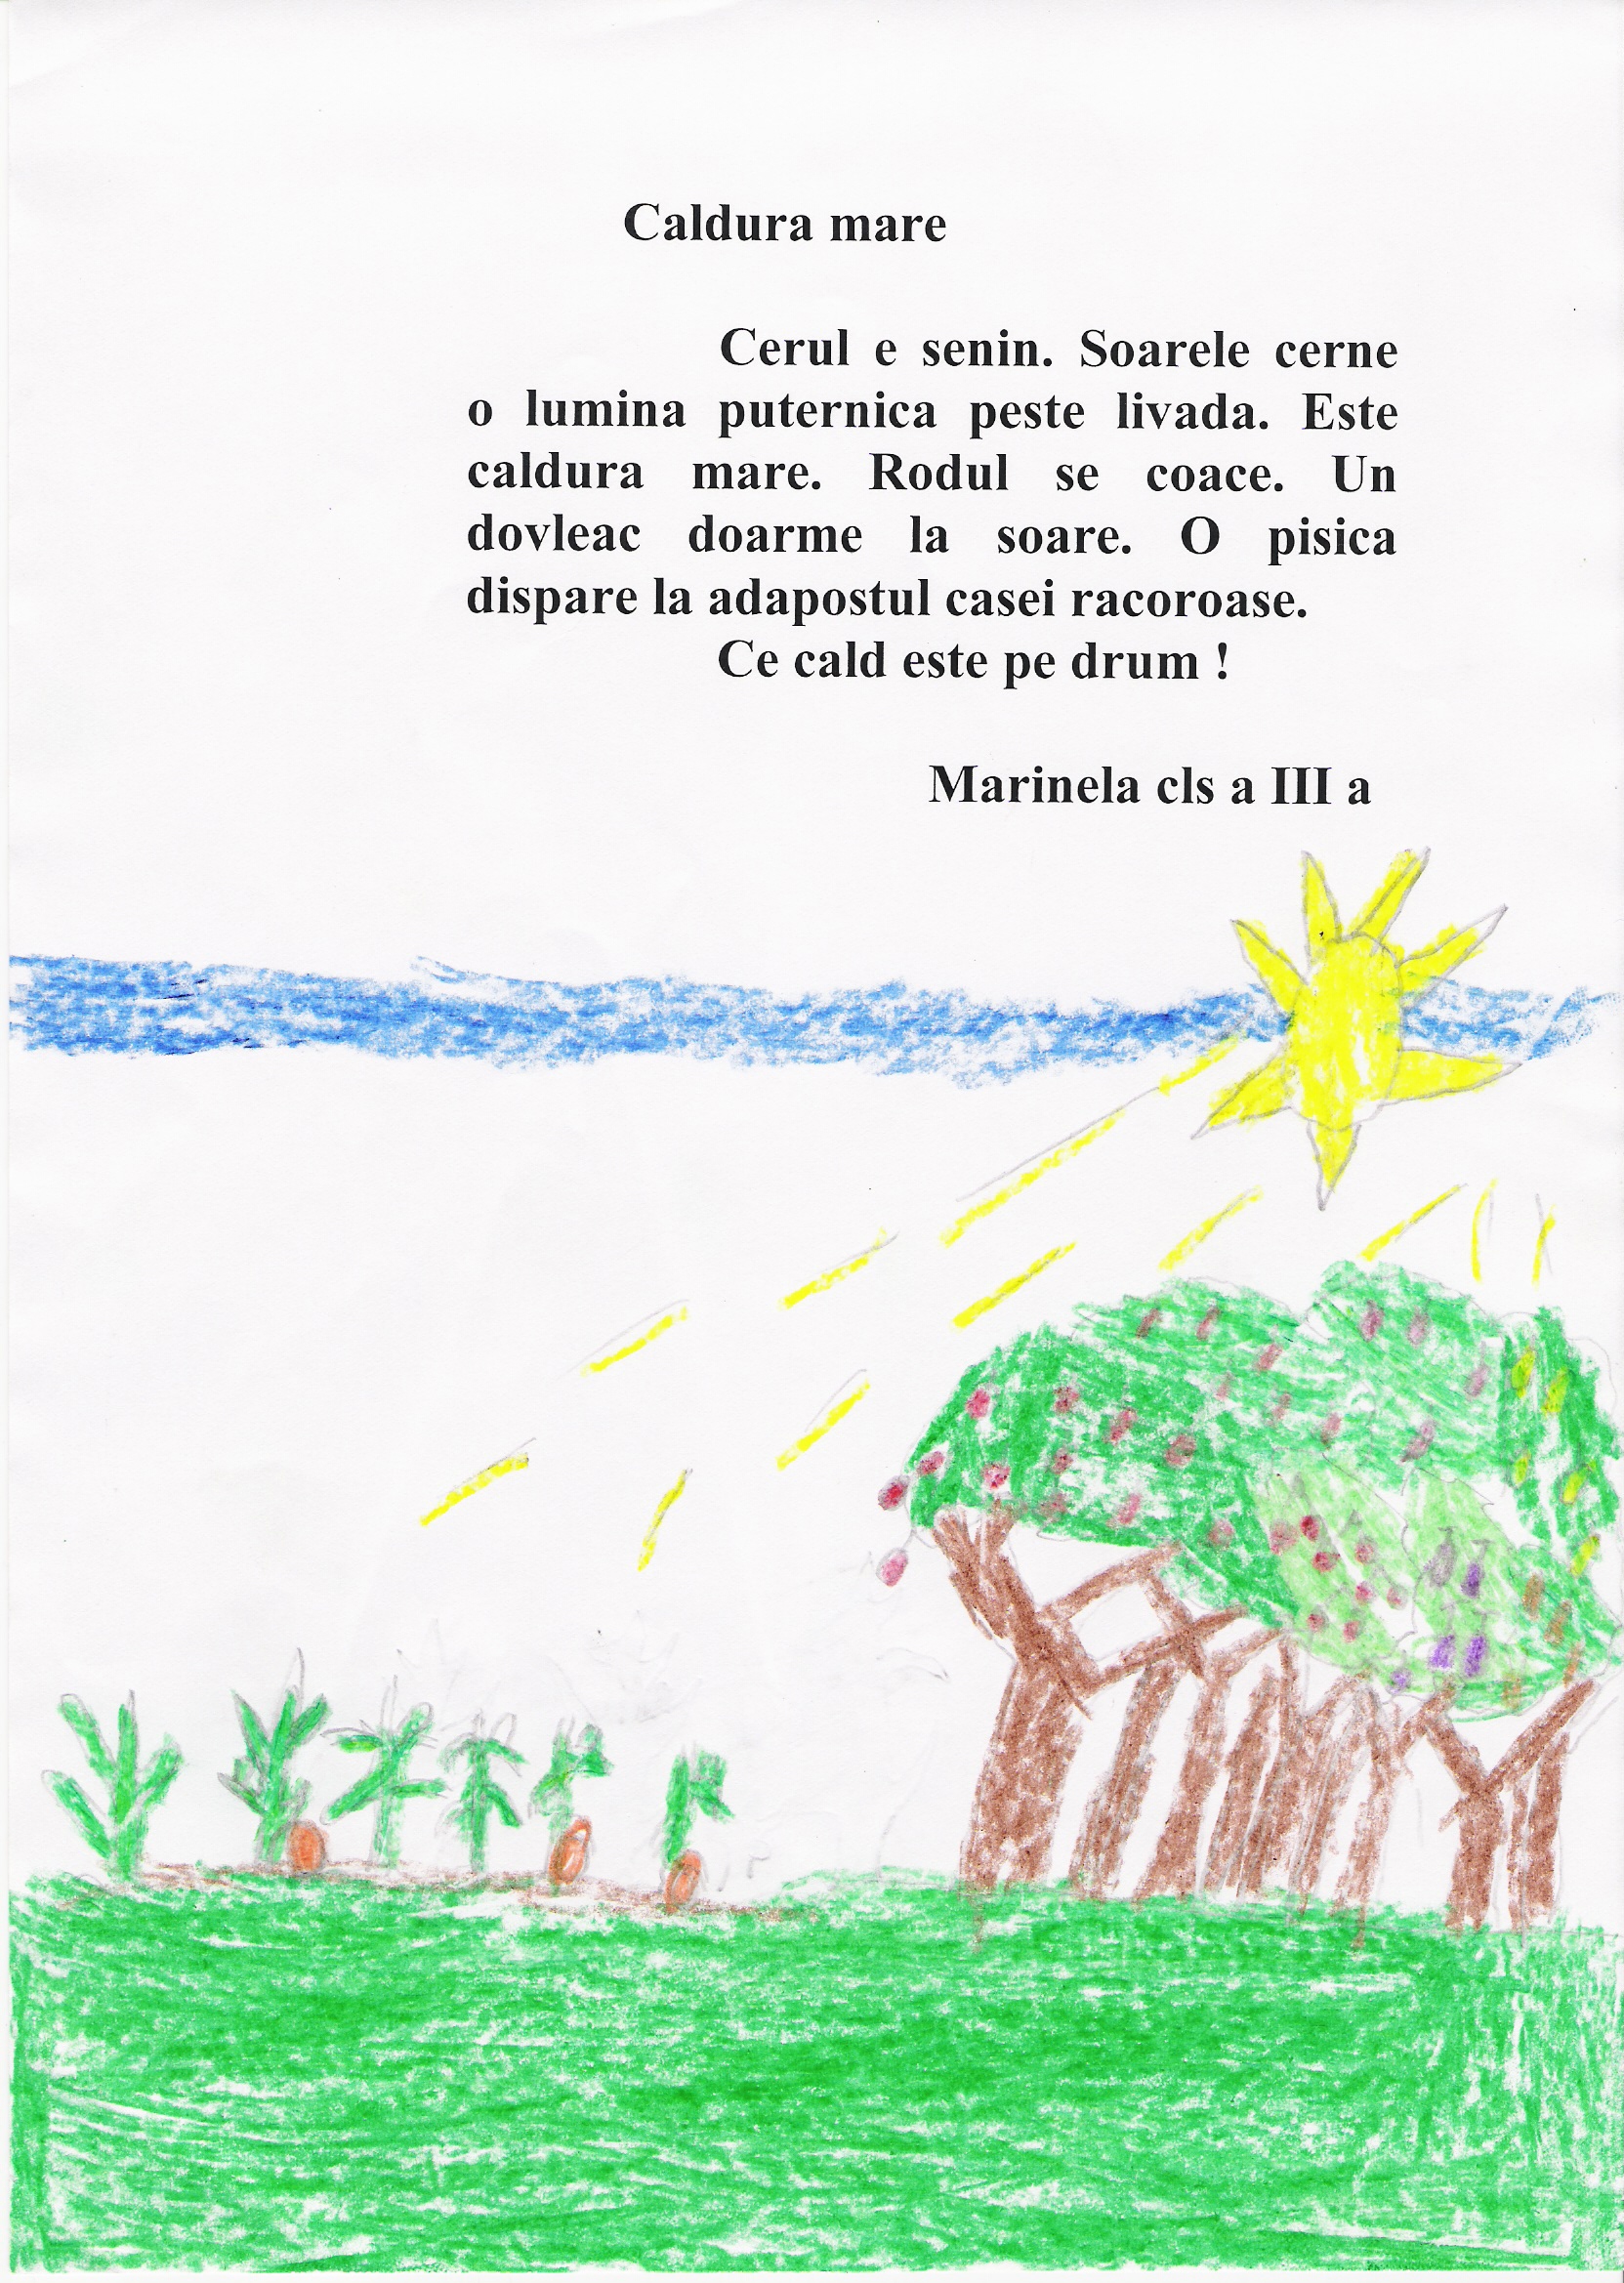 Caldura mare
Cerul e senin. Soarele cerne
o lumina puternica peste livada. Este
caldura mare. Rodul se coace. Un
dovleac doarme la soare. O pisica
dispare la adapostul casei racoroase.
Ce cald este pe drum !
Marinela cls a III a